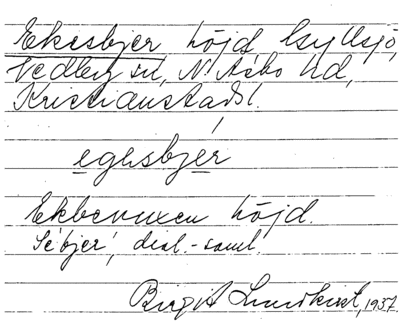 Ekesbjer höjd Gyllsjö,
Vedby sn, N. Åsbo hd,
Kristianstads l.
egesbjér
Ekbevuxen höjd.
Se bjer, dial.-saml.
Birgit Lundkvist, 1937